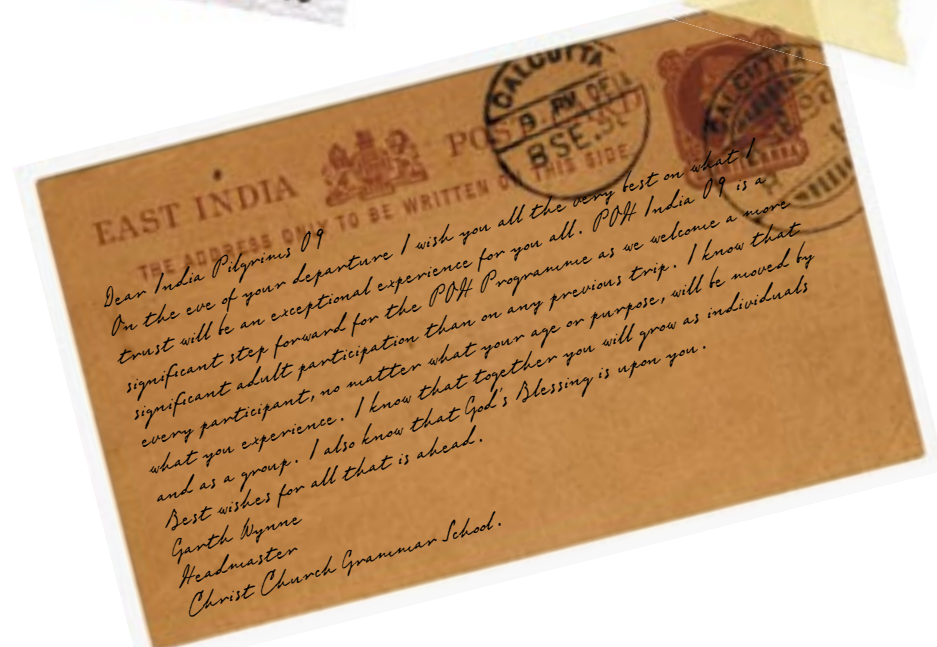 CALCUTTA
CALCUTTA
EAST INDIA POST CARD
THE ADDRESS ONLY TO BE WRITTEN ON THIS SIDE
Dear India Pilgrims 09
On the eve of your departure I wish you all the very best on what I
trust will be an exceptional experience for you all. POH India 09 is a
significant step forward for the POH Programme as we welcome a more
significant adult participation than on any previous trip. I know that
every participant, no matter what your age or purpose, will be moved by
what you experience. I know that together you will grow as individuals
and as a group. I also know that God's Blessing is upon you.
Best wishes for all that is ahead.
Garth Wynne
Headmaster
Christ Church Grammar School.